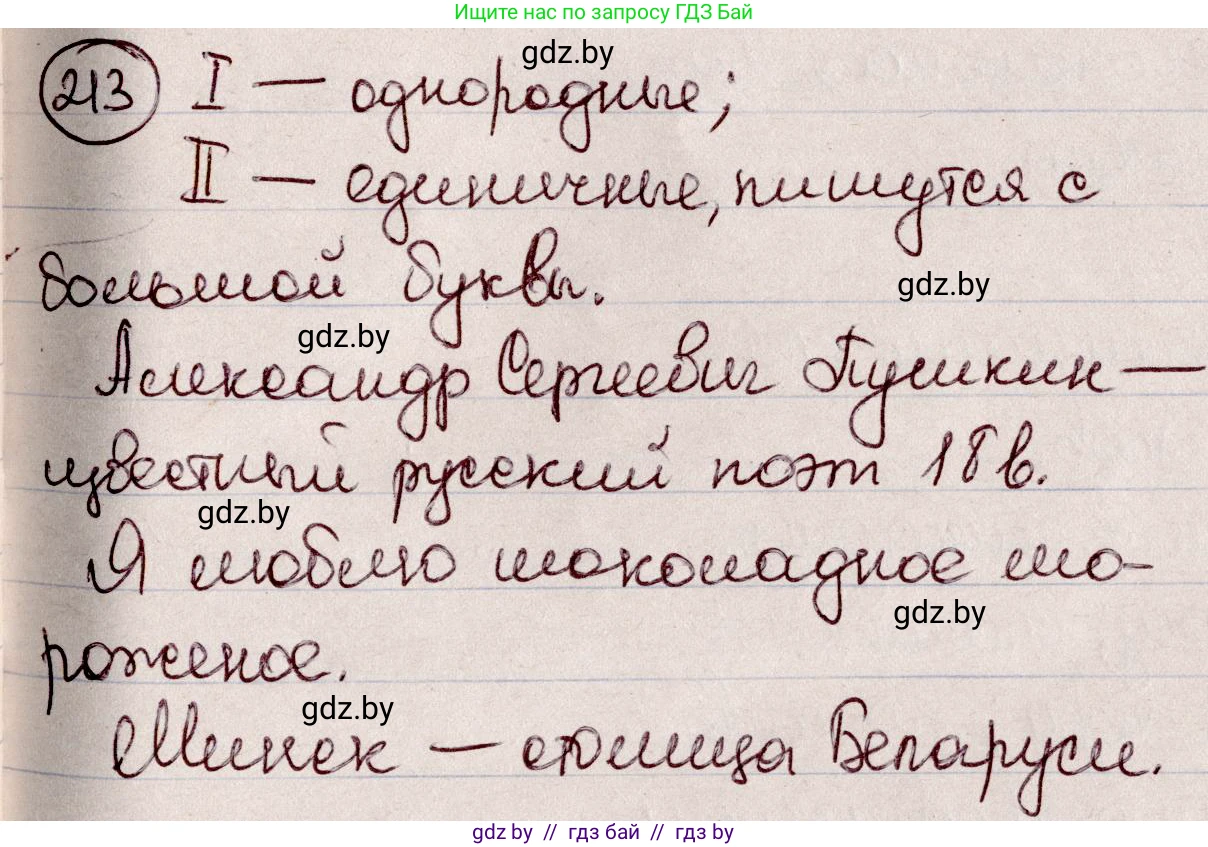 Ищите нас по запросу ГДЗ Бай
gdz.by
213 I — однородные;
II — единичные, пишутся с
большой буквы.
gdz.by
gdz.by
Александр Сергеевич Пушкин —
известный русский поэт 18 в.
gdz.by
Я люблю шоколадное мо-
gdz.by
роженое.
gdz.by
Минск — столица Беларуси.
gdz.by // гдз бай // гдз by